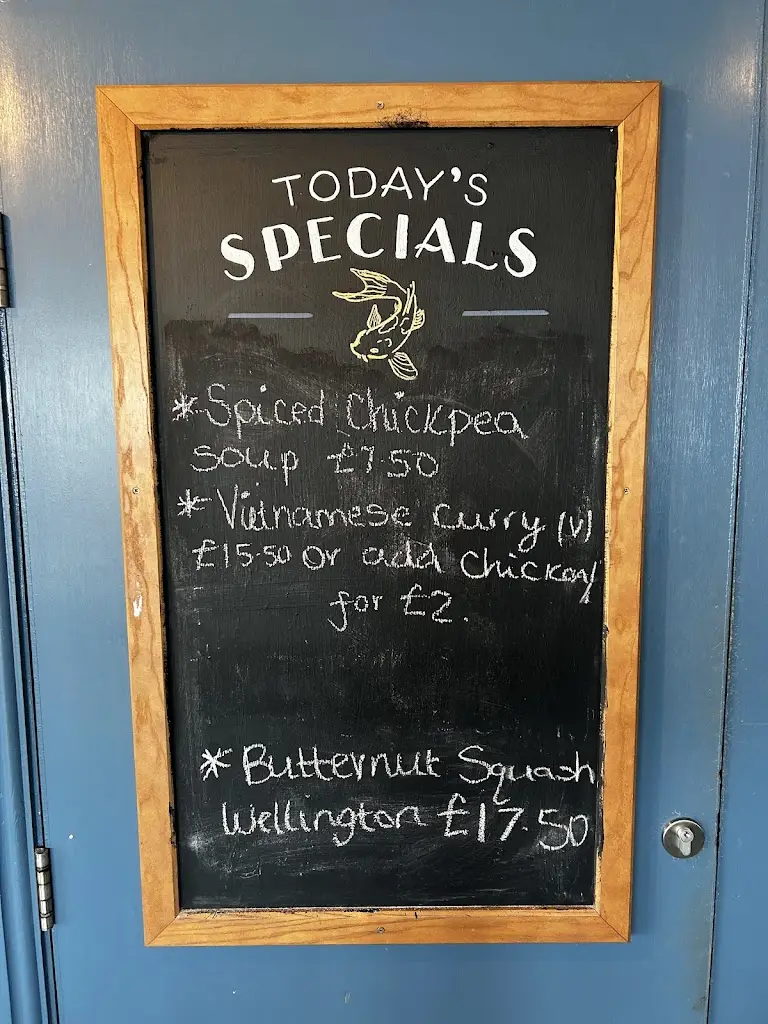 TODAY'S
SPECIALS
* Spiced Chickpea
soup £7.50
* Vietnamese curry (v)
£15.50 or add chicken
for £2.
* Butternut Squash
Wellington £17.50